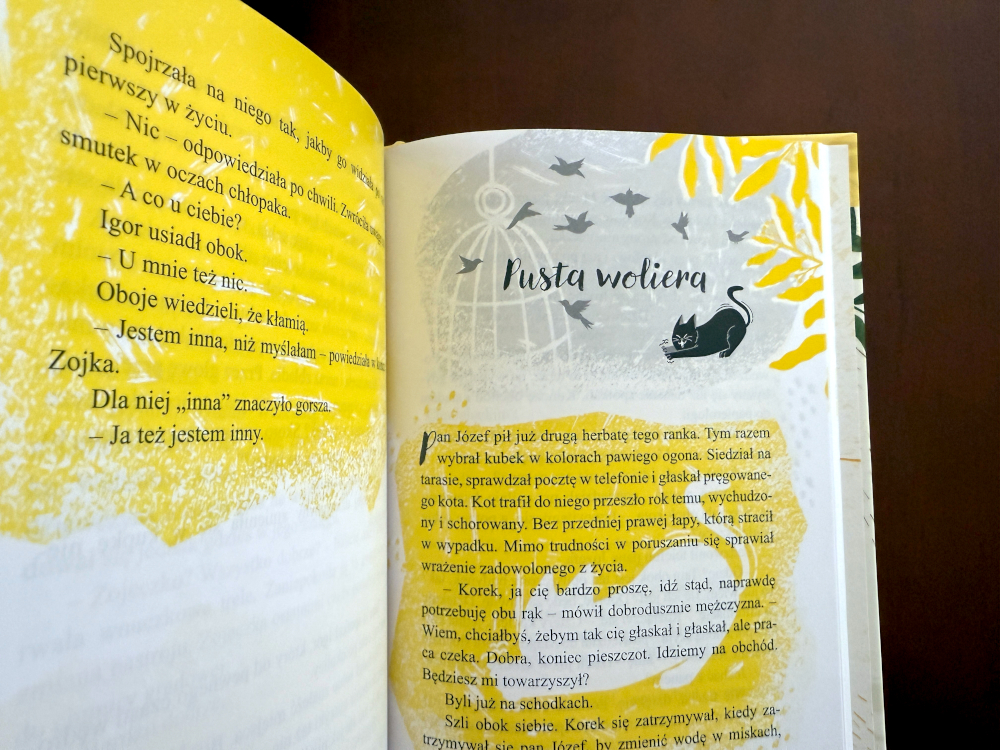 Spojrzała na niego tak, jakby go widziała po
pierwszy w życiu.
– Nic – odpowiedziała po chwili. Zwróciła uwagę
smutek w oczach chłopaka.
– A co u ciebie?
Igor usiadł obok.
– U mnie też nic.
Oboje wiedzieli, że kłamią.
– Jestem inna, niż myślałam – powiedziała w
Zojka.
Dla niej „inna” znaczyło gorsza.
– Ja też jestem inny.
Pusta woliera
Pan Józef pił już drugą herbatę tego ranka. Tym razem
wybrał kubek w kolorach pawiego ogona. Siedział na
tarasie, sprawdzał pocztę w telefonie i głaskał pręgowane-
go kota. Kot trafił do niego przeszło rok temu, wychudzo-
ny i schorowany. Bez przedniej prawej łapy, którą stracił
w wypadku. Mimo trudności w poruszaniu się sprawiał
wrażenie zadowolonego z życia.
– Korek, ja cię bardzo proszę, idź stąd, naprawdę
potrzebuję obu rąk – mówił dobrodusznie mężczyzna. –
Wiem, chciałbyś, żebym tak cię głaskał i głaskał, ale pra-
ca czeka. Dobra, koniec pieszczot. Idziemy na obchód.
Będziesz mi towarzyszył?
Byli już na schodkach.
Szli obok siebie. Korek się zatrzymywał, kiedy za-
trzymywał się pan Józef, by zmienić wodę w miskach,